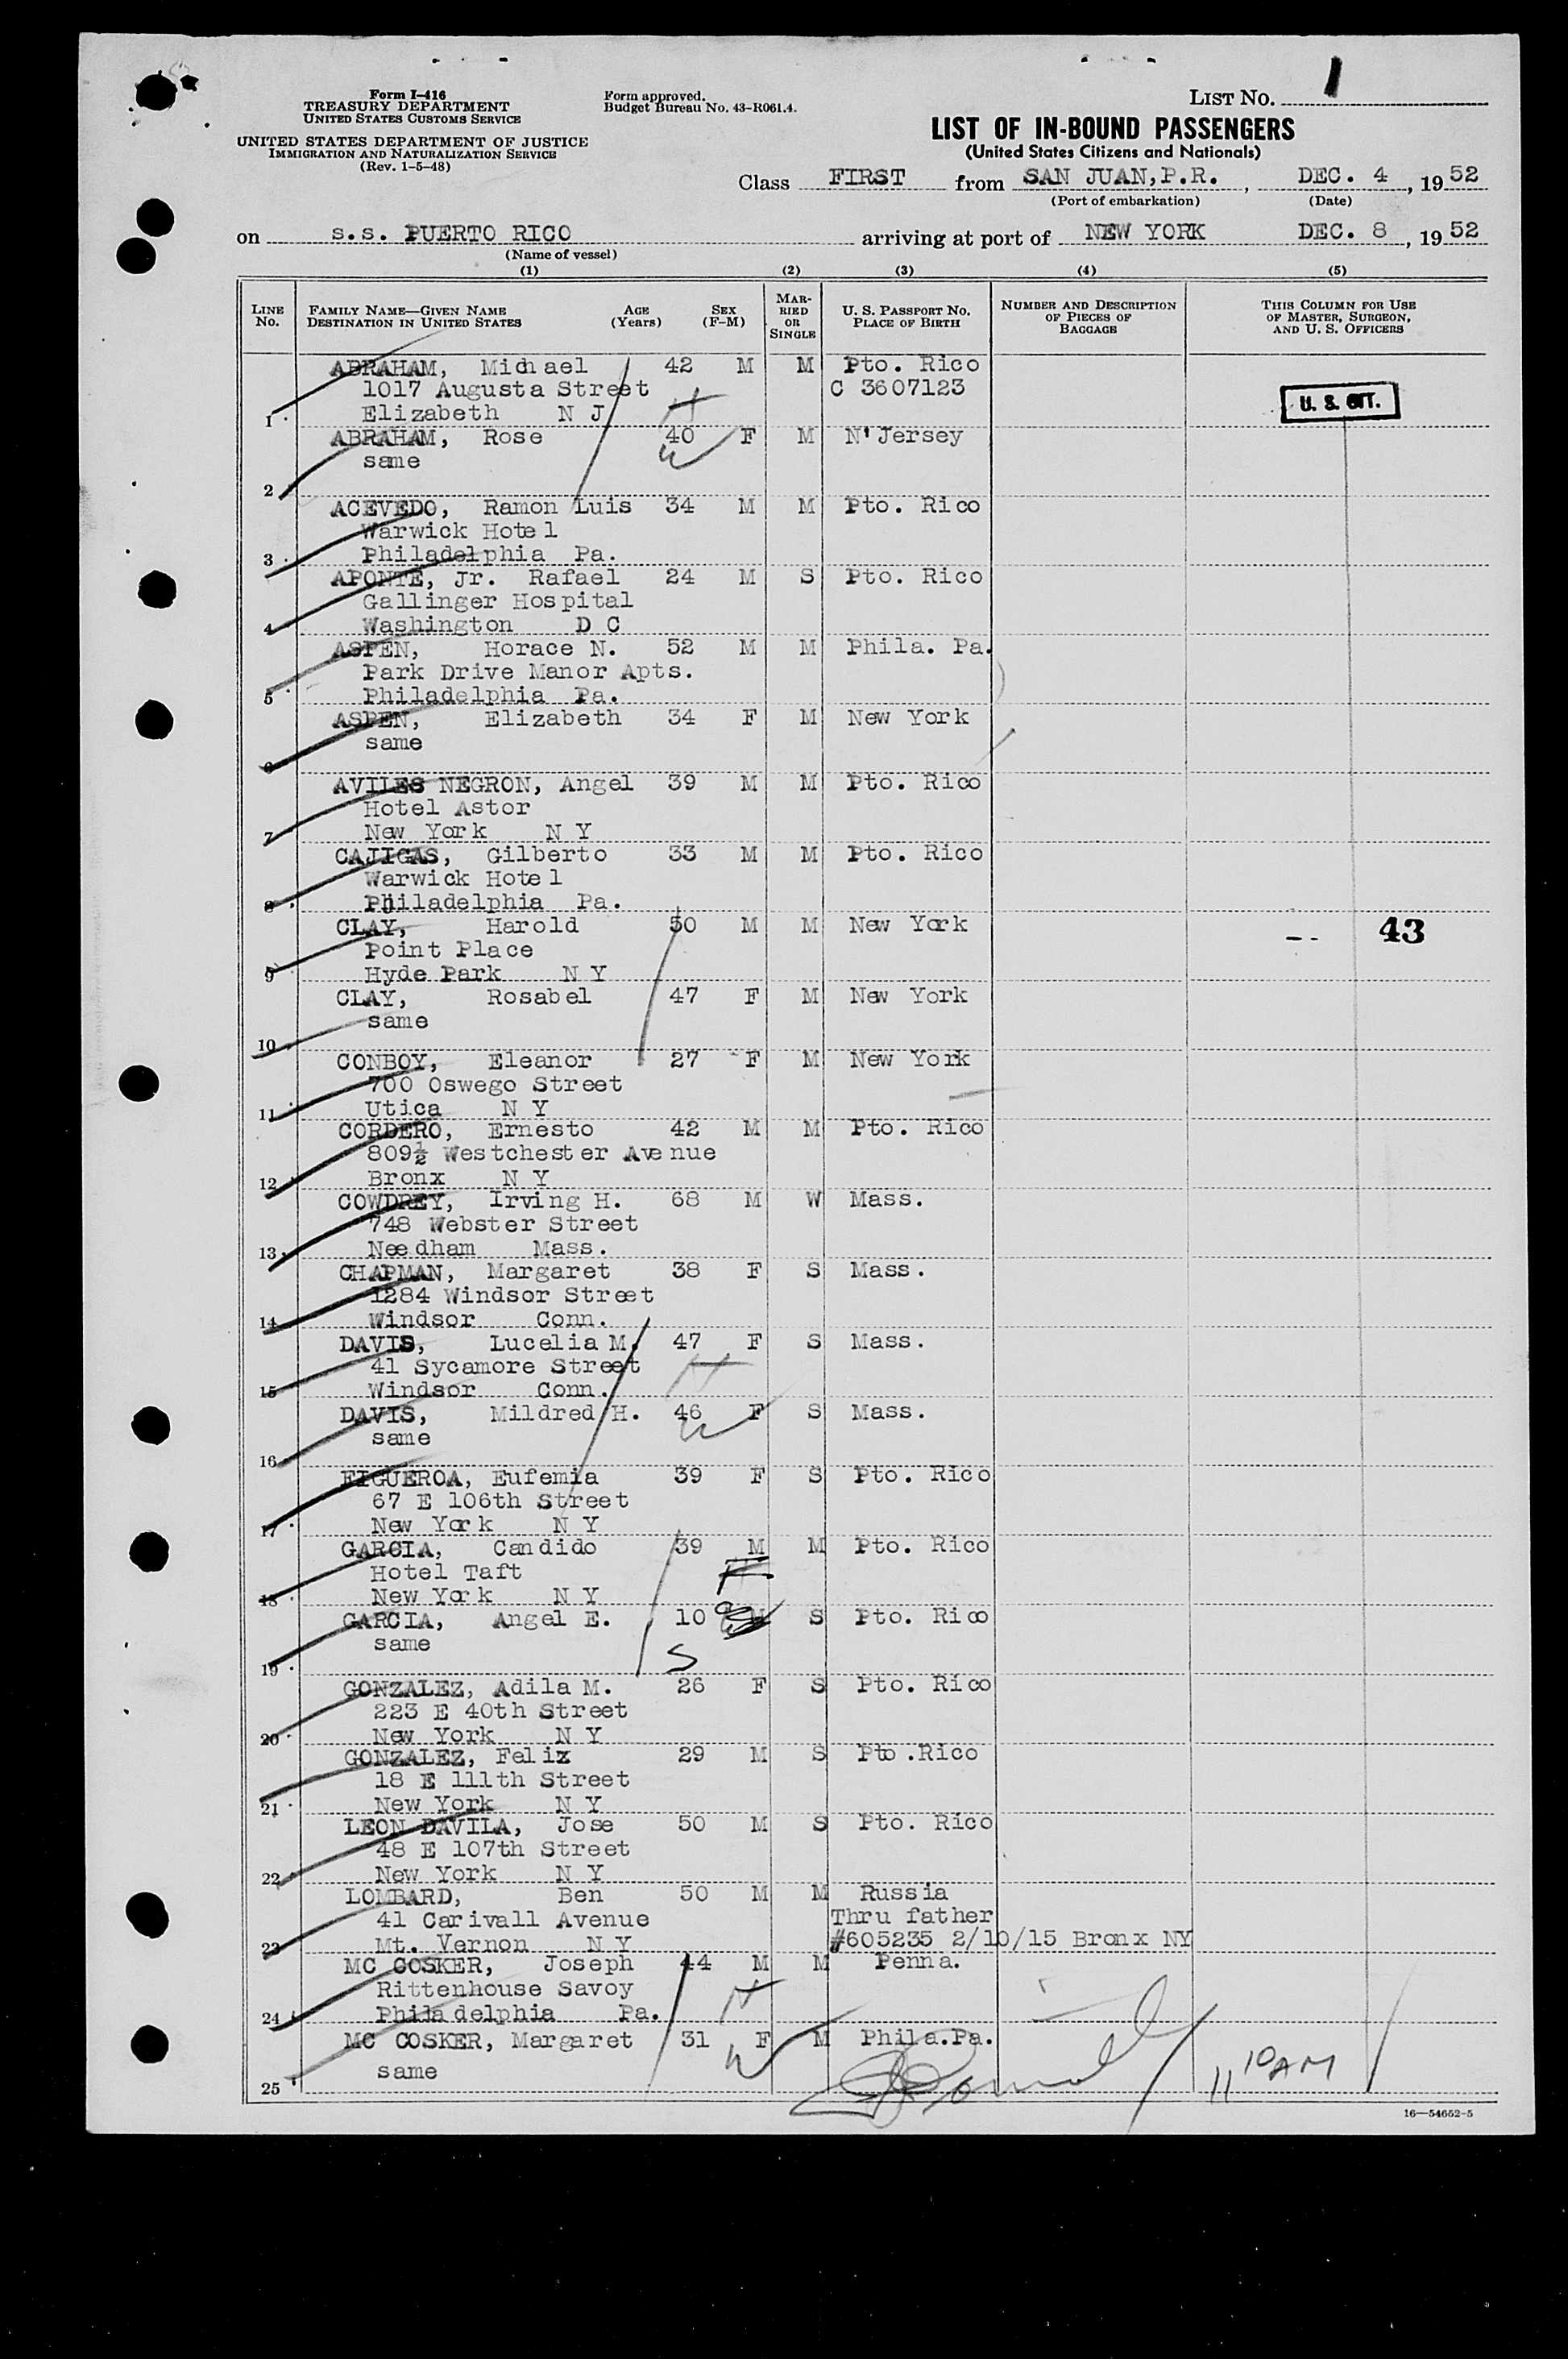 Form I-416
TREASURY DEPARTMENT
UNITED STATES CUSTOMS SERVICE
UNITED STATES DEPARTMENT OF JUSTICE
IMMIGRATION AND NATURALIZATION SERVICE
(Rev. 1-5-48)
Form approved.
Budget Bureau No. 43-R061.4.
LIST NO. 1
LIST OF IN-BOUND PASSENGERS
(United States Citizens and Nationals)
Class FIRST from SAN JUAN, P.R., DEC. 4, 1952
(Port of embarkation) (Date)
on s.s. PUERTO RICO arriving at port of NEW YORK DEC. 8, 1952
(Name of vessel)
(1) (2) (3) (4) (5)
LINE NO. FAMILY NAME—GIVEN NAME DESTINATION IN UNITED STATES AGE (Years) SEX (F-M) MARRIED OR SINGLE U. S. PASSPORT NO. PLACE OF BIRTH NUMBER AND DESCRIPTION OF PIECES OF BAGGAGE THIS COLUMN FOR USE OF MASTER, SURGEON, AND U. S. OFFICERS
ABRAHAM, Michael 42 M M Pto. Rico
1017 Augusta Street C 3607123
1 Elizabeth N J H U. S. CIT.
ABRAHAM, Rose 40 F M N' Jersey
same W
2
ACEVEDO, Ramon Luis 34 M M Pto. Rico
Warwick Hotel
3 Philadelphia Pa.
APONTE, Jr. Rafael 24 M S Pto. Rico
Gallinger Hospital
4 Washington D C
ASPEN, Horace N. 52 M M Phila. Pa.
Park Drive Manor Apts.
5 Philadelphia Pa.
ASPEN, Elizabeth 34 F M New York
same
6
AVILES NEGRON, Angel 39 M M Pto. Rico
Hotel Astor
7 New York N Y
CAJIGAS, Gilberto 33 M M Pto. Rico
Warwick Hotel
8 Philadelphia Pa.
CLAY, Harold 50 M M New York -- 43
Point Place
9 Hyde Park N Y
CLAY, Rosabel 47 F M New York
same
10
CONBOY, Eleanor 27 F M New York
700 Oswego Street
11 Utica N Y
CORDERO, Ernesto 42 M M Pto. Rico
809½ Westchester Avenue
12 Bronx N Y
COWDREY, Irving H. 68 M W Mass.
748 Webster Street
13 Needham Mass.
CHAPMAN, Margaret 38 F S Mass.
1284 Windsor Street
14 Windsor Conn.
DAVIS, Lucelia M. 47 F S Mass.
41 Sycamore Street H
15 Windsor Conn.
DAVIS, Mildred H. 46 F S Mass.
same W
16
FIGUEROA, Eufemia 39 F S Pto. Rico
67 E 106th Street
17 New York N Y
GARCIA, Candido 39 M M Pto. Rico
Hotel Taft
18 New York N Y
GARCIA, Angel E. 10 S Pto. Rico
same S
19
GONZALEZ, Adila M. 26 F S Pto. Rico
223 E 40th Street
20 New York N Y
GONZALEZ, Felix 29 M S Pto .Rico
18 E 111th Street
21 New York N Y
LEON DAVILA, Jose 50 M S Pto. Rico
48 E 107th Street
22 New York N Y
LOMBARD, Ben 50 M M Russia
41 Carivall Avenue Thru father
23 Mt. Vernon N Y #605235 2/10/15 Bronx NY
MC COSKER, Joseph 44 M M Penna.
Rittenhouse Savoy H
24 Philadelphia Pa.
MC COSKER, Margaret 31 F M Phila.Pa.
same W 11 10 AM
25
16—54652-5